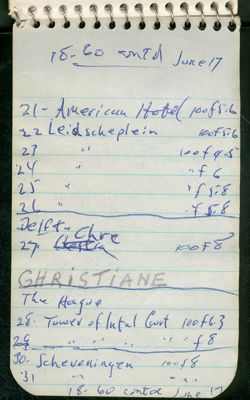 18-60 contd June 17
21- American Hotel 100 f5.6
22 Leidscheplein 100 f5.6
23 " 100 f4.5
24 " " f6
25 " " f5.8
26 " " f5.8
Delft - Chre
27. 100 f8
CHRISTIANE
The Hague
28- Tower of Intnl Court 100 f6.3
29 " " " " " f8
30- Scheveningen 100 f8
31 " " "
18-60 contd June 17